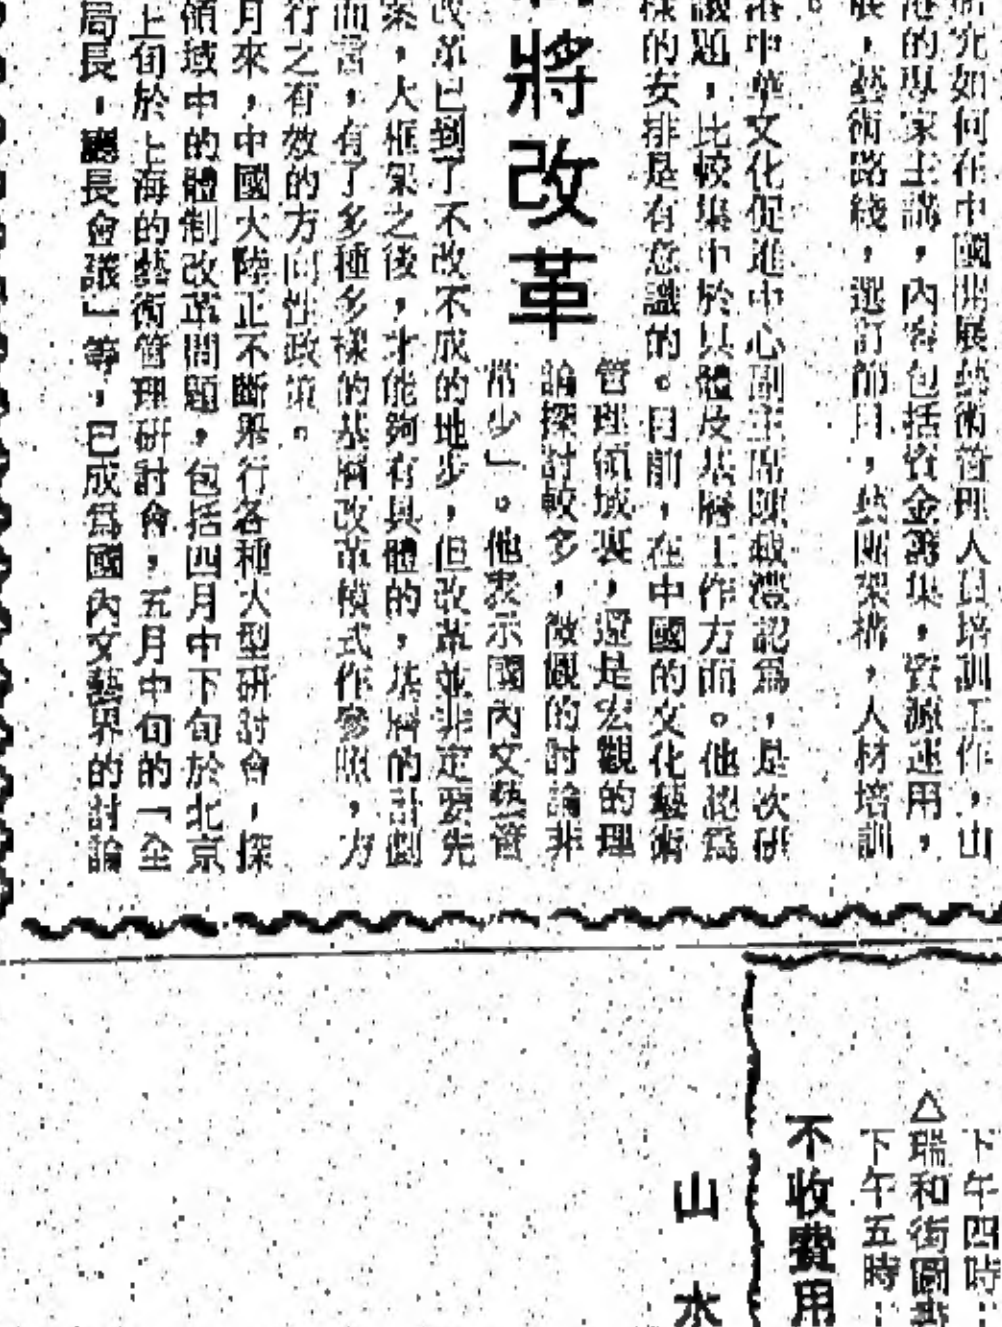 究如何在中國開展藝術管理人員培訓工作，由
港的專家主講，內容包括資金籌集，資源運用，
展，藝術路綫，選訂節目，藝團架構，人材培訓
。
港中華文化促進中心副主席陳載澧認爲，是次研
議題，比較集中於具體及基層工作方面。他認爲
樣的安排是有意識的。目前，在中國的文化藝術
管理領域裏，還是宏觀的理
論探討較多，微觀的討論非
常少」。他表示國內文藝管
將改革
改革已到了不改不成的地步，但改革並非定要先
案，大框架之後，才能夠有具體的，基層的計劃
而言，有了多種多樣的基層改革模式作參照，方
行之有效的方向性政策。
月來，中國大陸正不斷舉行各種大型研討會，探
領域中的體制改革問題，包括四月中下旬於北京
上旬於上海的藝術管理研討會，五月中旬的「全
局長，廳長會議」等，已成爲國內文藝界的討論
下午四時：
△瑞和街圖
下午五時：
不收費用
山水